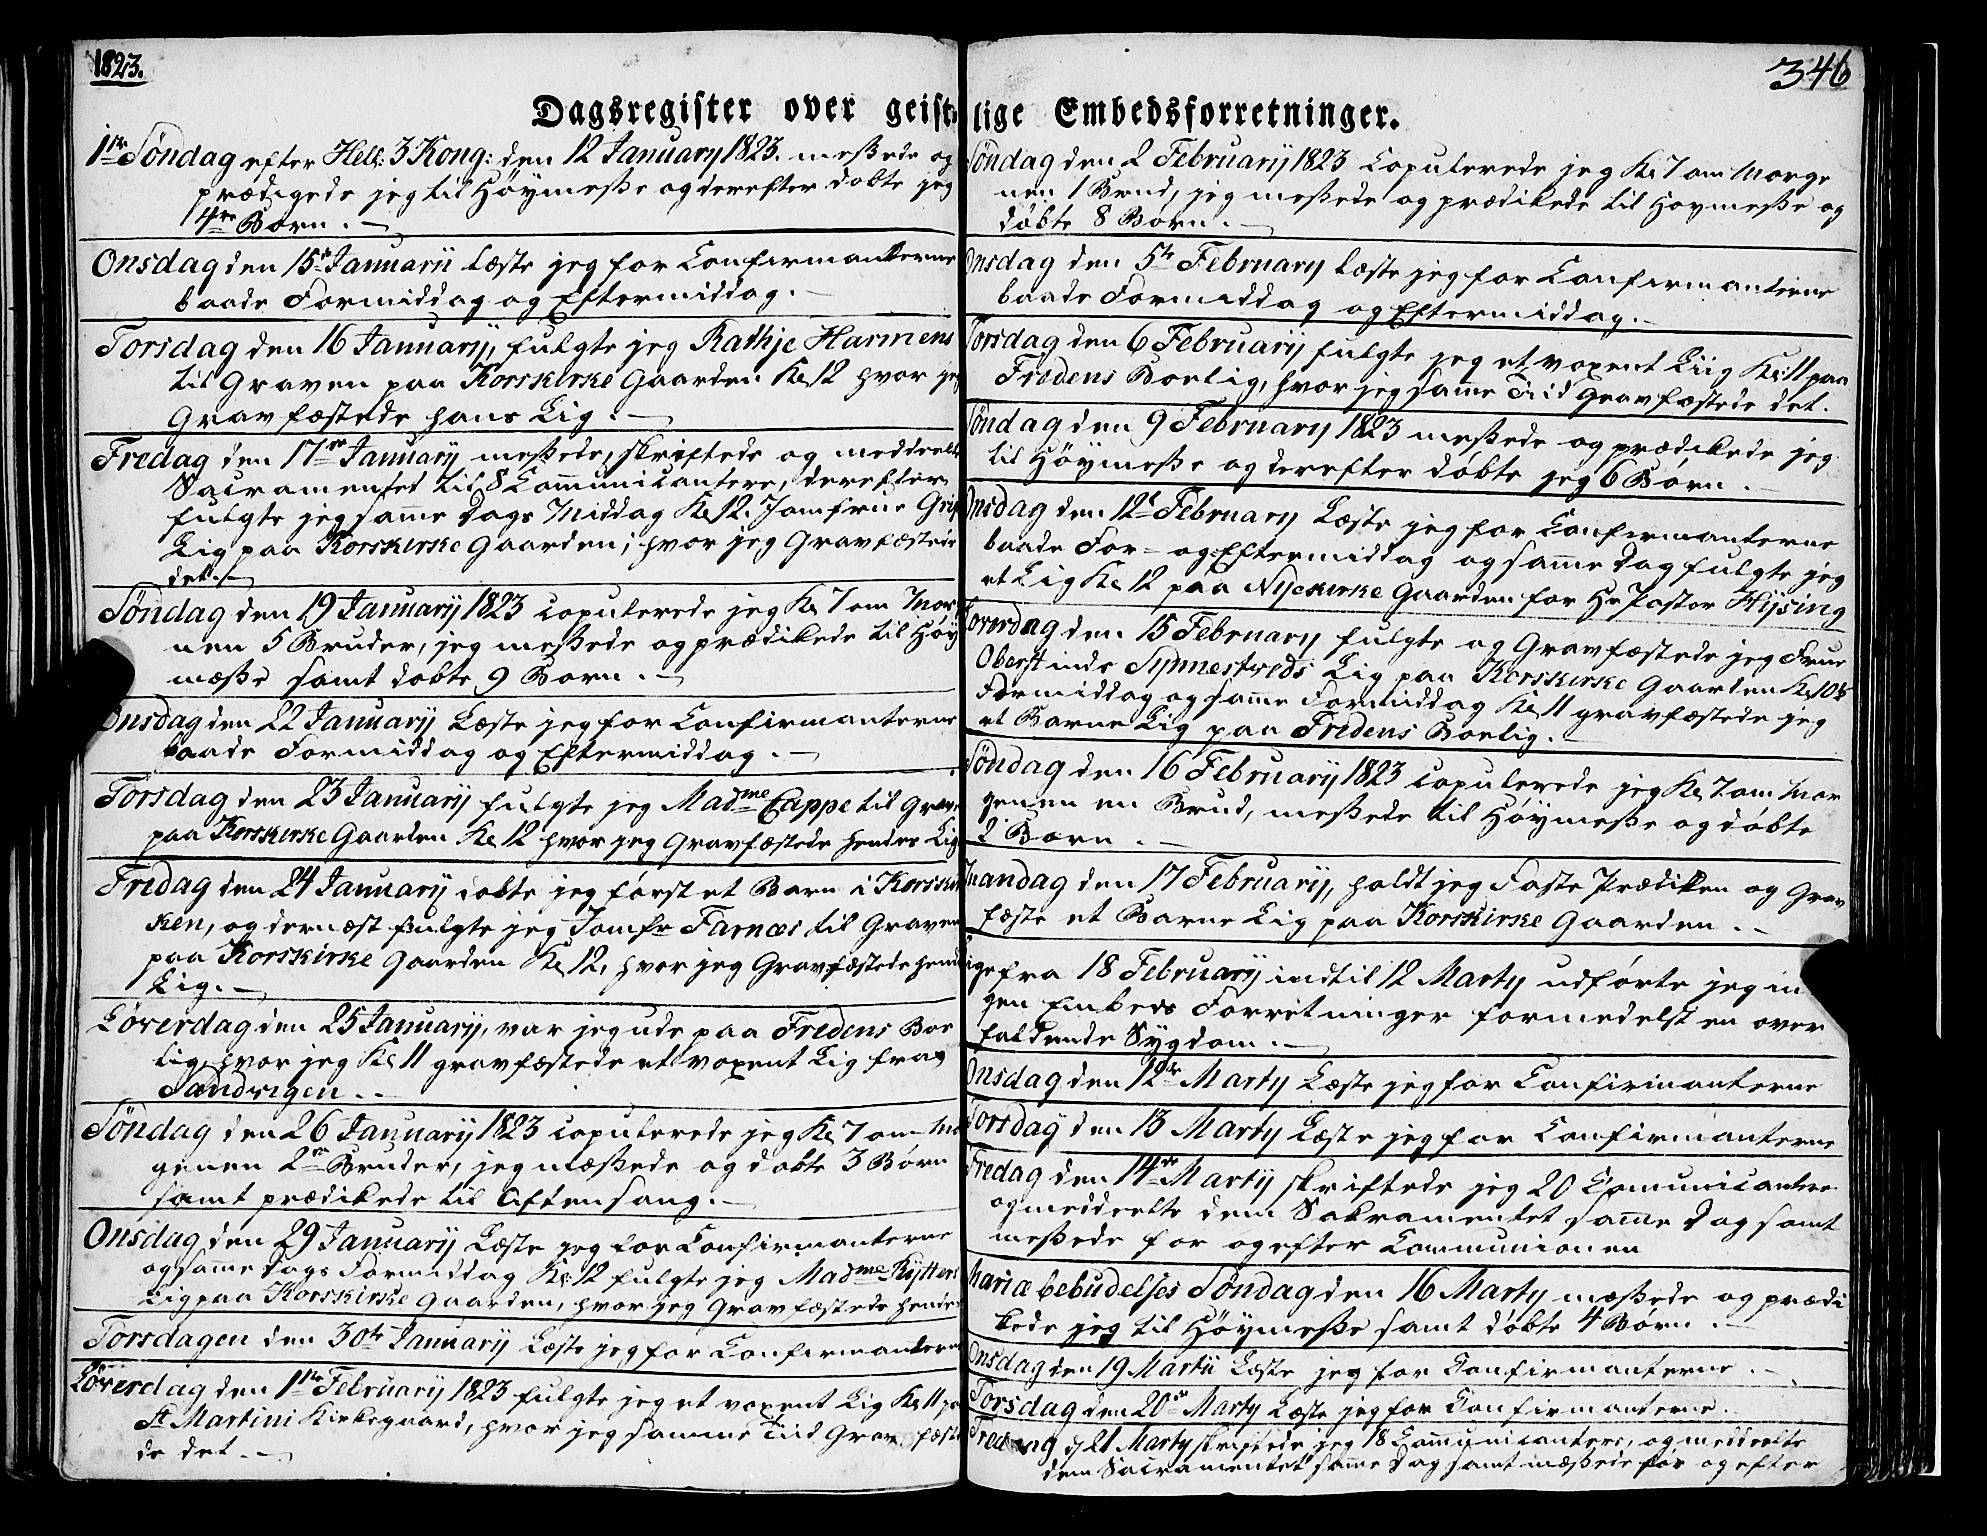 1823.
346
Dagsregister over geistlige Embedsforretninger.
1ste Søndag efter Hell: 3 Kong: den 12 January 1823. messede og
prædigede jeg til Høymesse og derefter døbte jeg
4re Børn.
Onsdag den 15de Januarii læste jeg for Confirmanterne
baade Formiddag og Eftermiddag.
Torsdag den 16 January, fulgte jeg Rathje Harmens
til Graven paa Korskirke Gaarden Kl 12 hvor jeg
Gravfæstede hans Lig.
Fredag den 17de January messede, skriftede og meddeelte
Sacramentet til 8 Communicantere, derefter
fulgte jeg samme Dags Middag Kl 12. Jomfrue
Lig paa Korskirke Gaarden, hvor jeg Gravfæstede
det.
Søndag den 19 January 1823 copulerede jeg Kl 7 om Mor
nen 5 Bruder, jeg messede og prædikede til Høy
mæsse samt døbte 9 Børn.
Onsdag den 22 January Læste jeg for Confirmanterne
baade Formiddag og Eftermiddag.
Torsdag den 23 January fulgte jeg Madme Cappe til Graven
paa Korskirke Gaarden Kl 12 hvor jeg Gravfæstede hendes Lig
Fredag den 24 January døbte jeg først et Barn i Korskir
ken, og dernæst fulgte jeg Jomfr Farnæs til Graven
paa Korskirke Gaarden Kl 12, hvor jeg Gravfæstede hendes
Lig.
Løverdag den 25 January, var jeg ude paa Fredens Boe
lig, hvor jeg Kl 11 gravfæstede et voxent Lig fra
Sandvigen.
Søndag den 26 January 1823 copulerede jeg Kl 7 om Mor
genen 2de Bruder, jeg mæssede og døbte 3 Børn
samt prædikede til Aftensang.
Onsdag den 29 January Læste jeg for Confirmanterne
og samme Dags Formiddag Kl: 12 fulgte jeg Madme Rÿtters
Lig paa Korskirke Gaarden, hvor jeg Gravfæstede hende
Torsdagen den 30te January Læste jeg for Confirmanterne
Løverdag den 1ste February 1823 fulgte jeg et voxent Lig Kl 11 paa
St Martini Kirkegaard, hvor jeg samme Tiid Gravfæste
de det.
Søndag den 2 February 1823 Copulerede jeg Kl 7 om Morge
nen 1 Brud, jeg messede og prædikede til Høymesse og
døbte 8 Børn.
Onsdag den 5te February læste jeg for Confirmanterne
baade Formiddag og Eftermiddag.
Torsdag den 6 February fulgte jeg et voxent Liig Kl: 11 paa
Fredens Boelig, hvor jeg samme Tiid Gravfæstede det.
Søndag den 9 February 1823 messede og prædikede jeg
til Høymesse og derefter døbte jeg 6 Børn.
Onsdag den 12te February Læste jeg for Confirmanterne
baade For- og Eftermiddag og samme Dag fulgte jeg
et Lig Kl 12 paa Nyekirke Gaarden for Hr Pastor Hysing
Løverdag den 15 February fulgte og Gravfæstede jeg Frue
Oberstinde Synnestveds Lig paa Korskirke Gaarden Kl 10½
Formiddag og samme Formiddag Kl 11 gravfæstede jeg
et Barne Lig paa Fredens Boelig.
Søndag den 16 February 1823 copulerede jeg Kl 7 om Mor
genen en Brud, messede til Høymesse og døbte
2 Børn.
Mandag den 17 February, holdt jeg Faste Prædiken og Grav
fæste et Barne Lig paa Korskirke Gaarden.
fra 18 February indtil 12 Marty udførte jeg in
gen Embeds Forretninger formedelst en over
faldende Sygdom.
Onsdag den 12te Marty Læste jeg for Confirmanterne
Torsdag den 13 Marty Læste jeg for Confirmanterne
Fredag den 14de Marty skriftede jeg 20 Comunicantere
og meddeelte dem Sakramentet samme Dag samt
messede for og efter Communionen
Mariæ bebudelses Søndag den 16 Marty mæssede og prædi
kede jeg til Høymesse samt døbte 4 Børn.
Onsdag den 19 Martii Læste jeg for Confirmanterne.
Torsdag den 20de Marty Læste jeg for Confirmanterne.
Fredag d 21 Marty skriftede jeg 18 Communicantere, og meddeelte
dem Sacramentet samme Dag samt mæssede for og efter